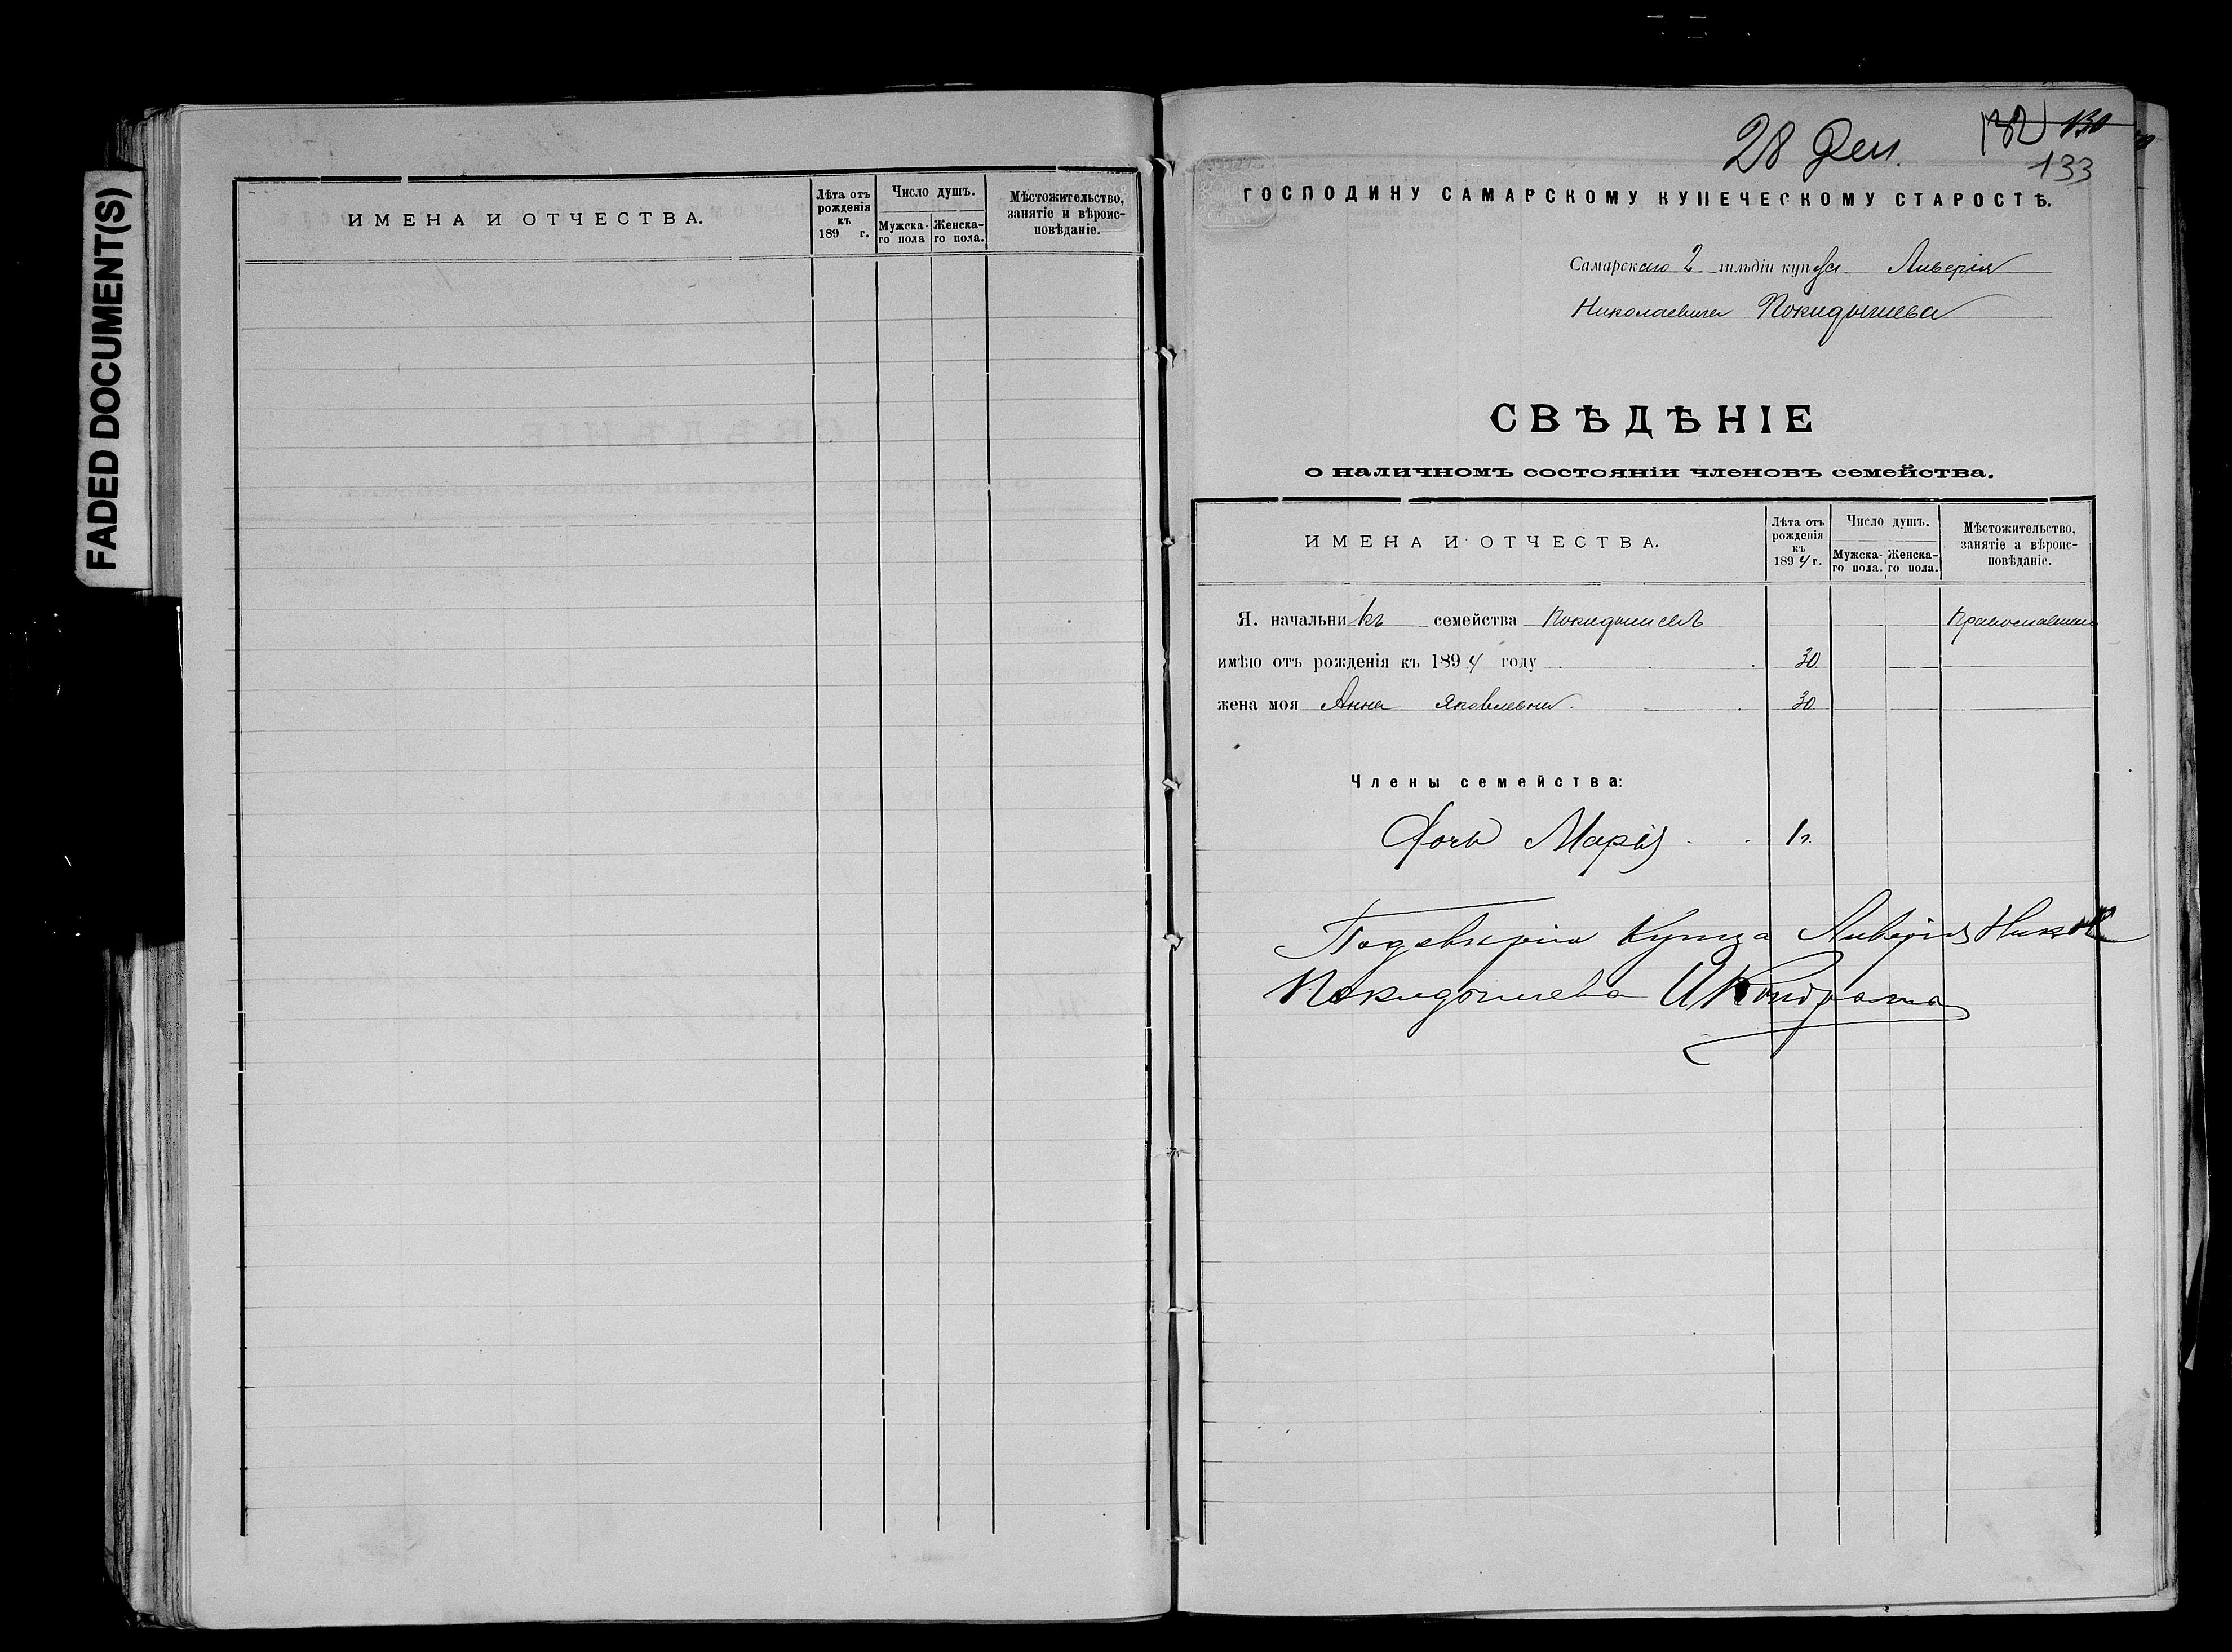 FADED DOCUMENT(S)
ИМЕНА И ОТЧЕСТВА.
Лѣта отъ рожденія къ 189 г.
Число душъ.
Мужска-го пола
Женска-го пола.
Мѣстожительство, занятіе и вѣроис-повѣданіе.
28 Дек.
132 130
133
ГОСПОДИНУ САМАРСКОМУ КУПЕЧЕСКОМУ СТАРОСТѢ.
Самарскаго 2 гильдіи купца Ливерія
Николаевича Покидышева
СВѢДѢНІЕ
о наличномъ состояніи членовъ семейства.
ИМЕНА И ОТЧЕСТВА.
Лѣта отъ рожденія къ 1894 г.
Число душъ.
Мужска-го пола.
Женска-го пола.
Мѣстожительство, занятіе а вѣроис-повѣданіе.
Я. начальникъ семейства Покидышевъ Православнаго
имѣю отъ рожденія къ 1894 году 30
жена моя Анна Яковлевна. 30
Члены семейства:
Дочь Марія 1 г.
Купца Ливерія Ник
Покидышева